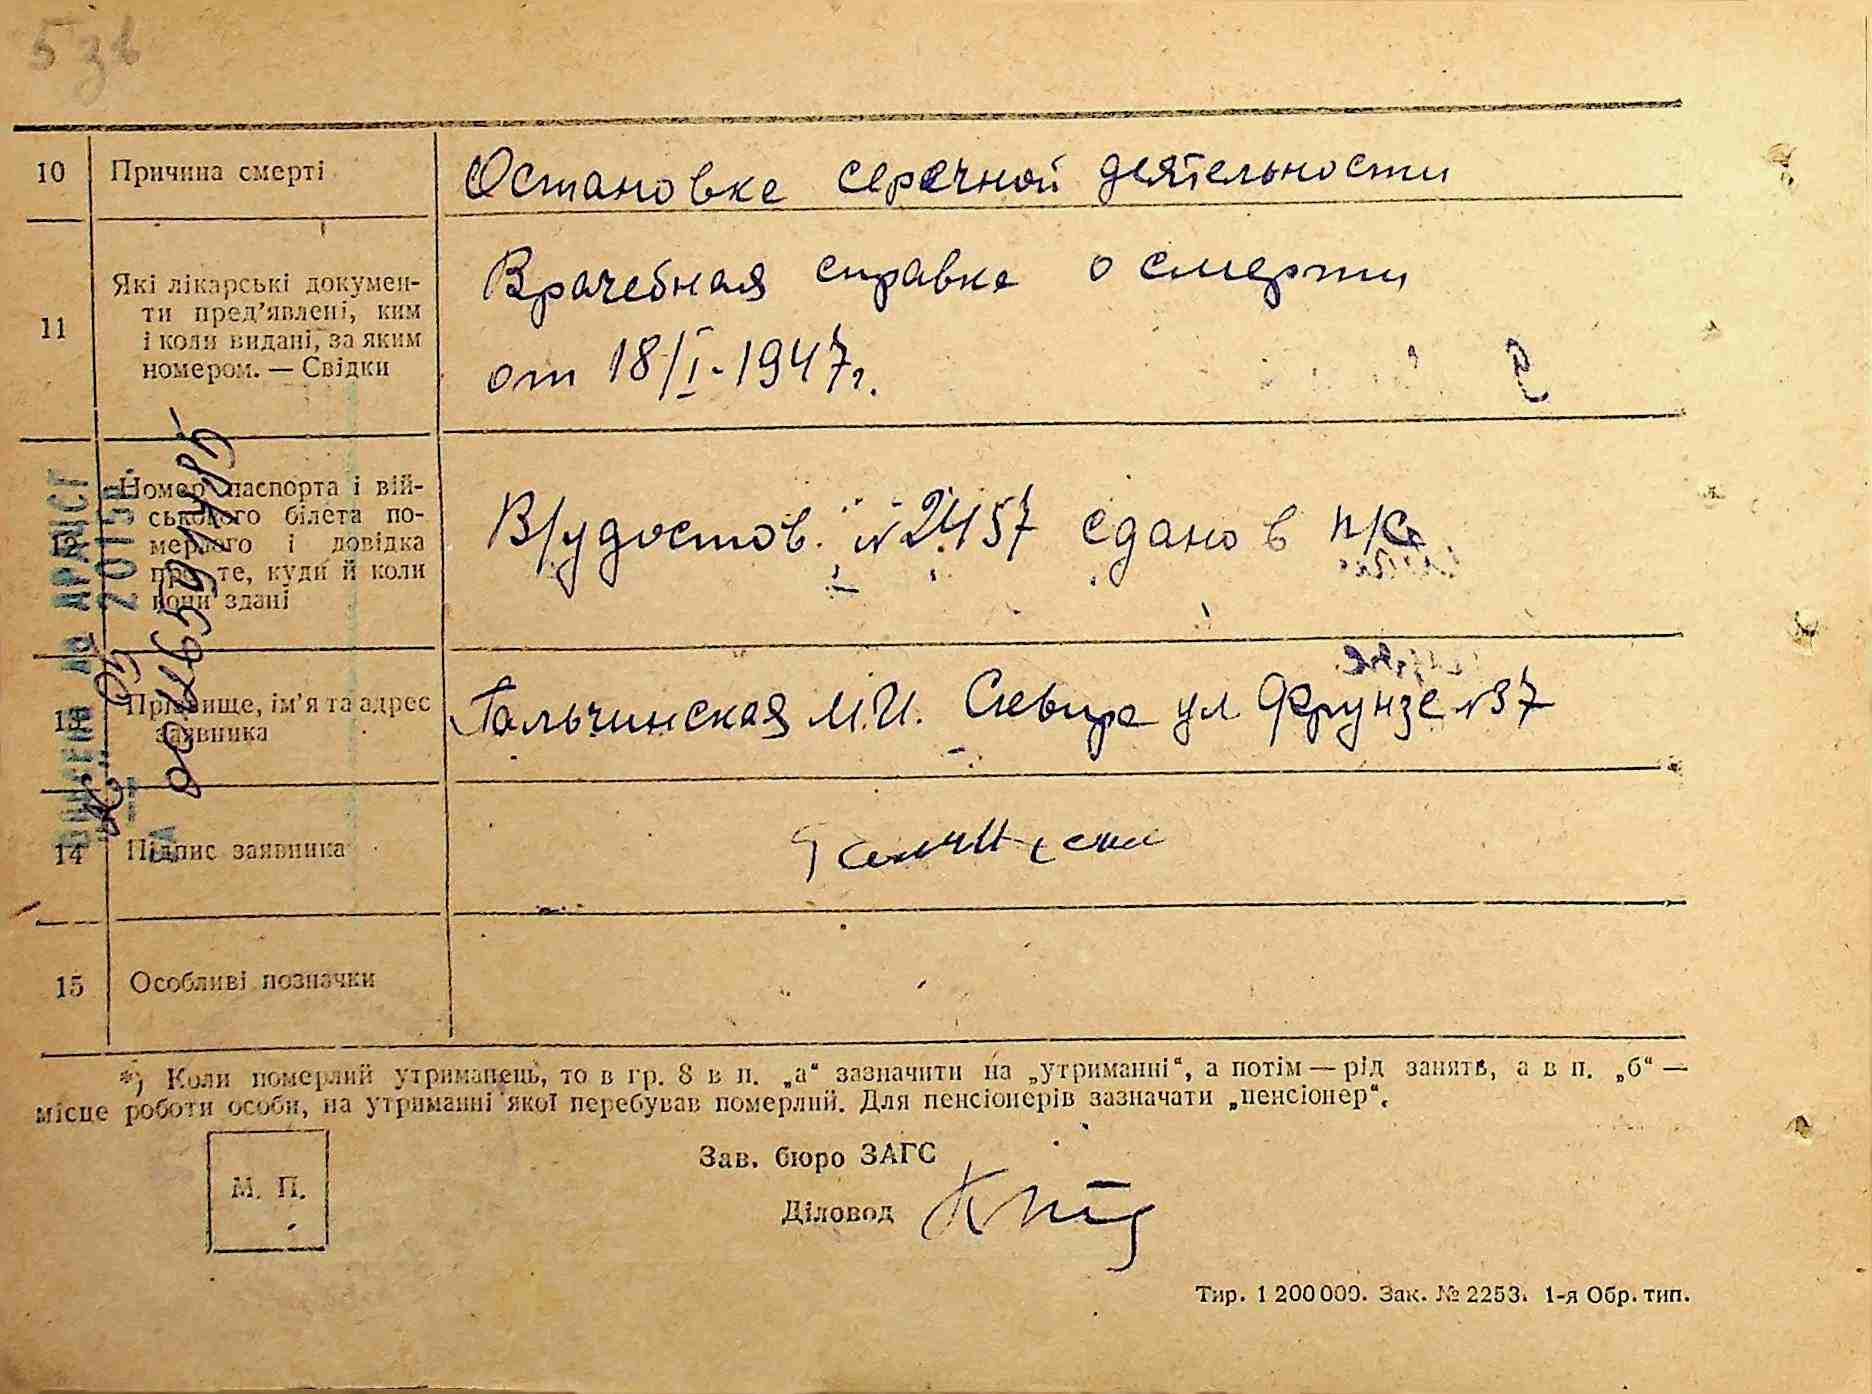 5 зв
10 Причина смерті Остановке серечной деятельности
11 Які лікарські докумен-
ти пред’явлені, ким
і коли видані, за яким
номером. — Свідки
Врачебная справке о смерти
от 18/I-1947г.
Номер паспорта і вій-
ського білета по-
мерлого і довідка
про те, куди й коли
вони здані
В/удостов. №2457 сдано в п/с
13 Прізвище, ім’я та адрес
заявника
Гальчинская М.И. Сквира ул Фрунзе №37
14 Підпис заявника
15 Особливі позначки
*) Коли померлий утриманець, то в гр. 8 в п. „а“ зазначити на „утриманні“, а потім — рід занять, а в п. „б“ —
місце роботи особи, на утриманні якої перебував померлий. Для пенсіонерів зазначати „пенсіонер“.
М. П.
Зав. бюро ЗАГС
Діловод
Тир. 1 200 000. Зак. № 2253. 1-я Обр. тип.